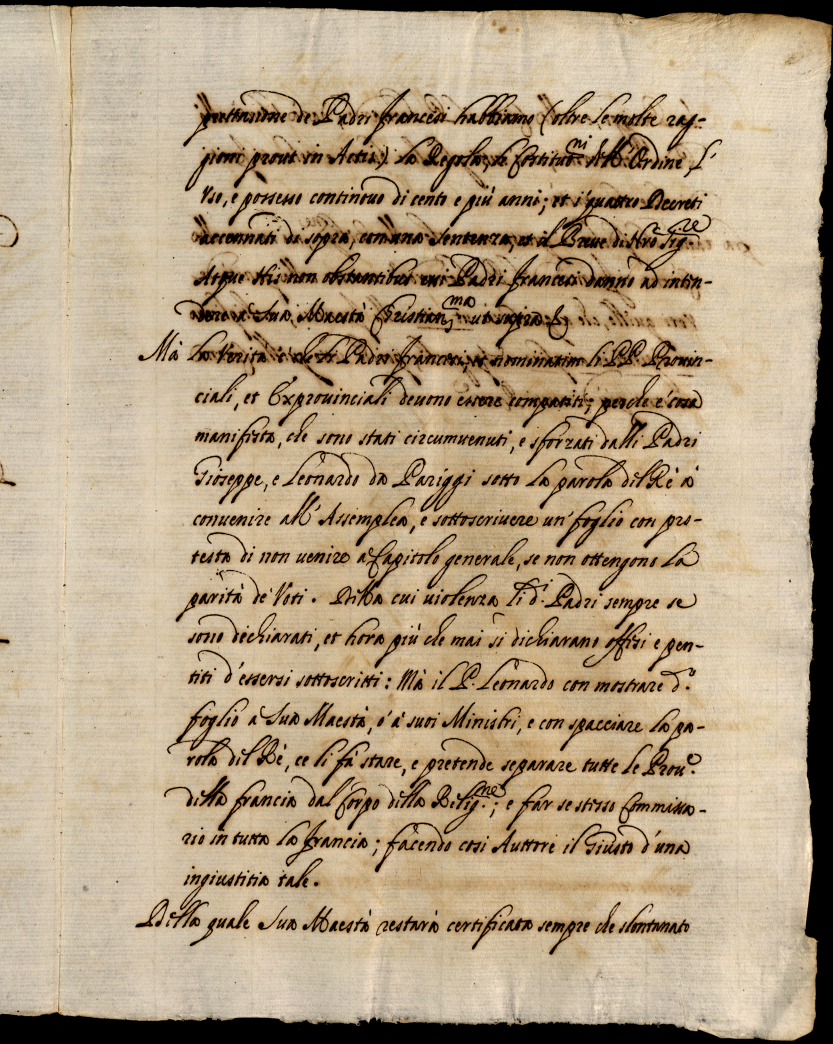 prettensione de Padri francesi habbiamo (oltre le molte rag-
gioni prout in Actis) la Regola, le Costituo.ni dell'Ordine l'
Uso, e possesso continovo di cento e più anni; et i quattro Decreti
accennati di sopra, con una Sentenza, et il Breve di Nro Sig.re
Atque His non obstantibus cui Padri francesi danno ad inten-
dere a Sua Maestà Christian.ma ut supra &
Mà la Verità è che li Padri francesi, et nominatim li PP. Provin-
ciali, et Exprovinciali devono essere compatiti; perche è cosa
manifesta, che sono stati circumvenuti, e sforzati dalli Padri
Gioseppe, e Leonardo da Pariggi sotto la parola del Rè à
convenire all'Assemplea, e sottoscrivere un'foglio con pro-
testa di non venire a Capitolo generale, se non ottengono la
parità de Voti. Della cui violenza li d.i Padri sempre se
sono dechiarati, et hora più che mai si dichiarano offesi e pen-
titi d'essersi sottoscritti: Mà il P. Leonardo con mostrare d.o
foglio a Sua Maestà, ò à suoi Ministri, e con spacciare la pa-
rola del Rè, ce li fà stare, e pretende separare tutte le Prov.e
della francia dal Corpo della Relig.ne; e far se stesso Commissa-
rio in tutta la francia; facendo così Auttore il Giusto d'una
ingiustitia tale.
Della quale Sua Maestà restarà certificata sempre che slontanato